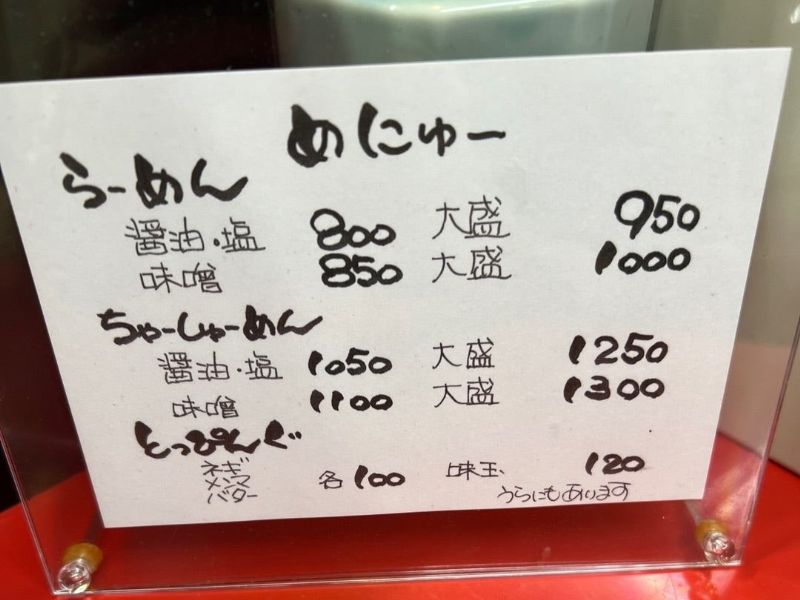 めにゅー
らーめん
醤油・塩 800 大盛 950
味噌 850 大盛 1000
ちゃーしゅーめん
醤油・塩 1050 大盛 1250
味噌 1100 大盛 1300
とっぴんぐ
ネギ
メンマ 各100 味玉 120
バター
うらにもあります